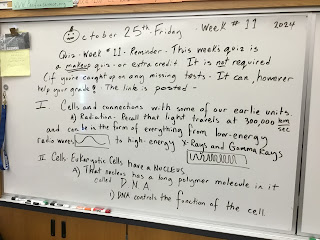 October 25th - Friday - Week #11 2024
Quiz - Week #11 - Reminder - This week's quiz is
a makeup quiz - or extra credit. It is not required
(if you're caught up on any missing tests - It can, however
help your grade? The link is posted -
I Cells and connections with some of our earlier units.
A) Radiation: Recall that light travels at 300,000 km/sec
and can be in the form of everything from low-energy
radio waves to high-energy X-Rays and Gamma Rays
II Cells: Eukaryotic Cells have a NUCLEUS.
A) That nucleus has a long polymer molecule in it
called DNA
1) DNA controls the function of the cell.